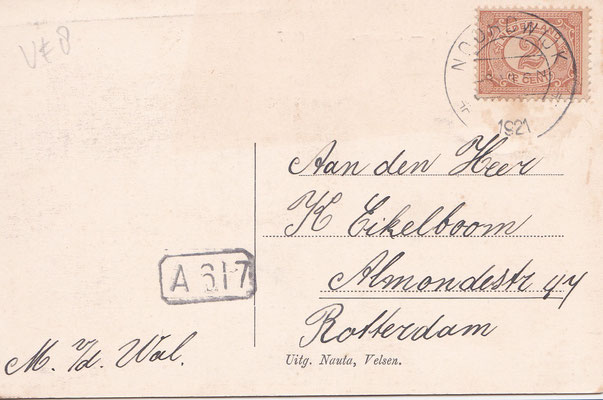 NOORDWIJK
1921
Aan den Heer
K Eikelboom
Almondestr 44
Rotterdam
A 617
M. v/d. Wal.
Uitg. Nauta, Velsen.